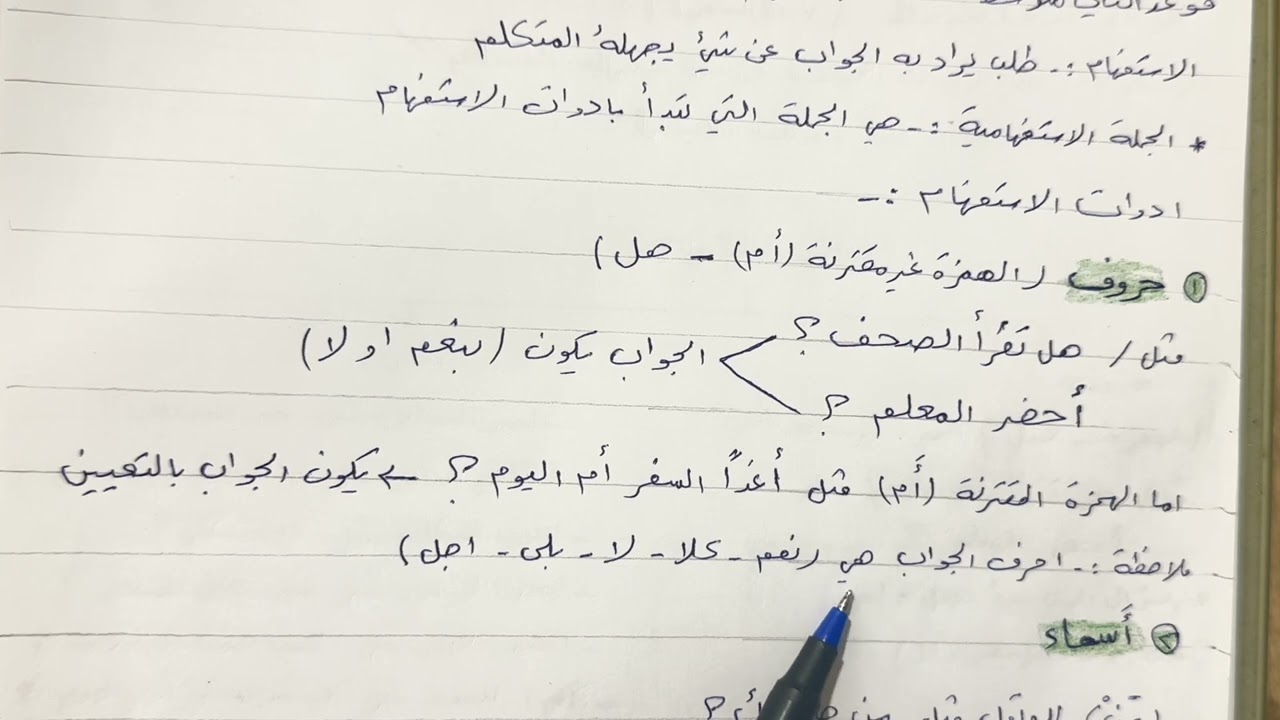 الاستفهام :- طلب يراد به الجواب عن شيئ يجهلهُ المتكلم
* الجملة الاستفهامية :- هي الجملة التي تبدأ بادوات الاستفهام
ادوات الاستفهام :-
① حروف (الهمزة غير مقترنة (أم) - هل)
مثل / هل تقرأ الصحف ؟
الجواب يكون (بنعم او لا)
أحضر المعلم ؟
اما الهمزة المقترنة (أم) مثل أغداً السفر أم اليوم ؟ ← يكون الجواب بالتعيين
ملاحظة :- احرف الجواب هي (نعم - كلا - لا - بلى - اجل)
② أَسماء